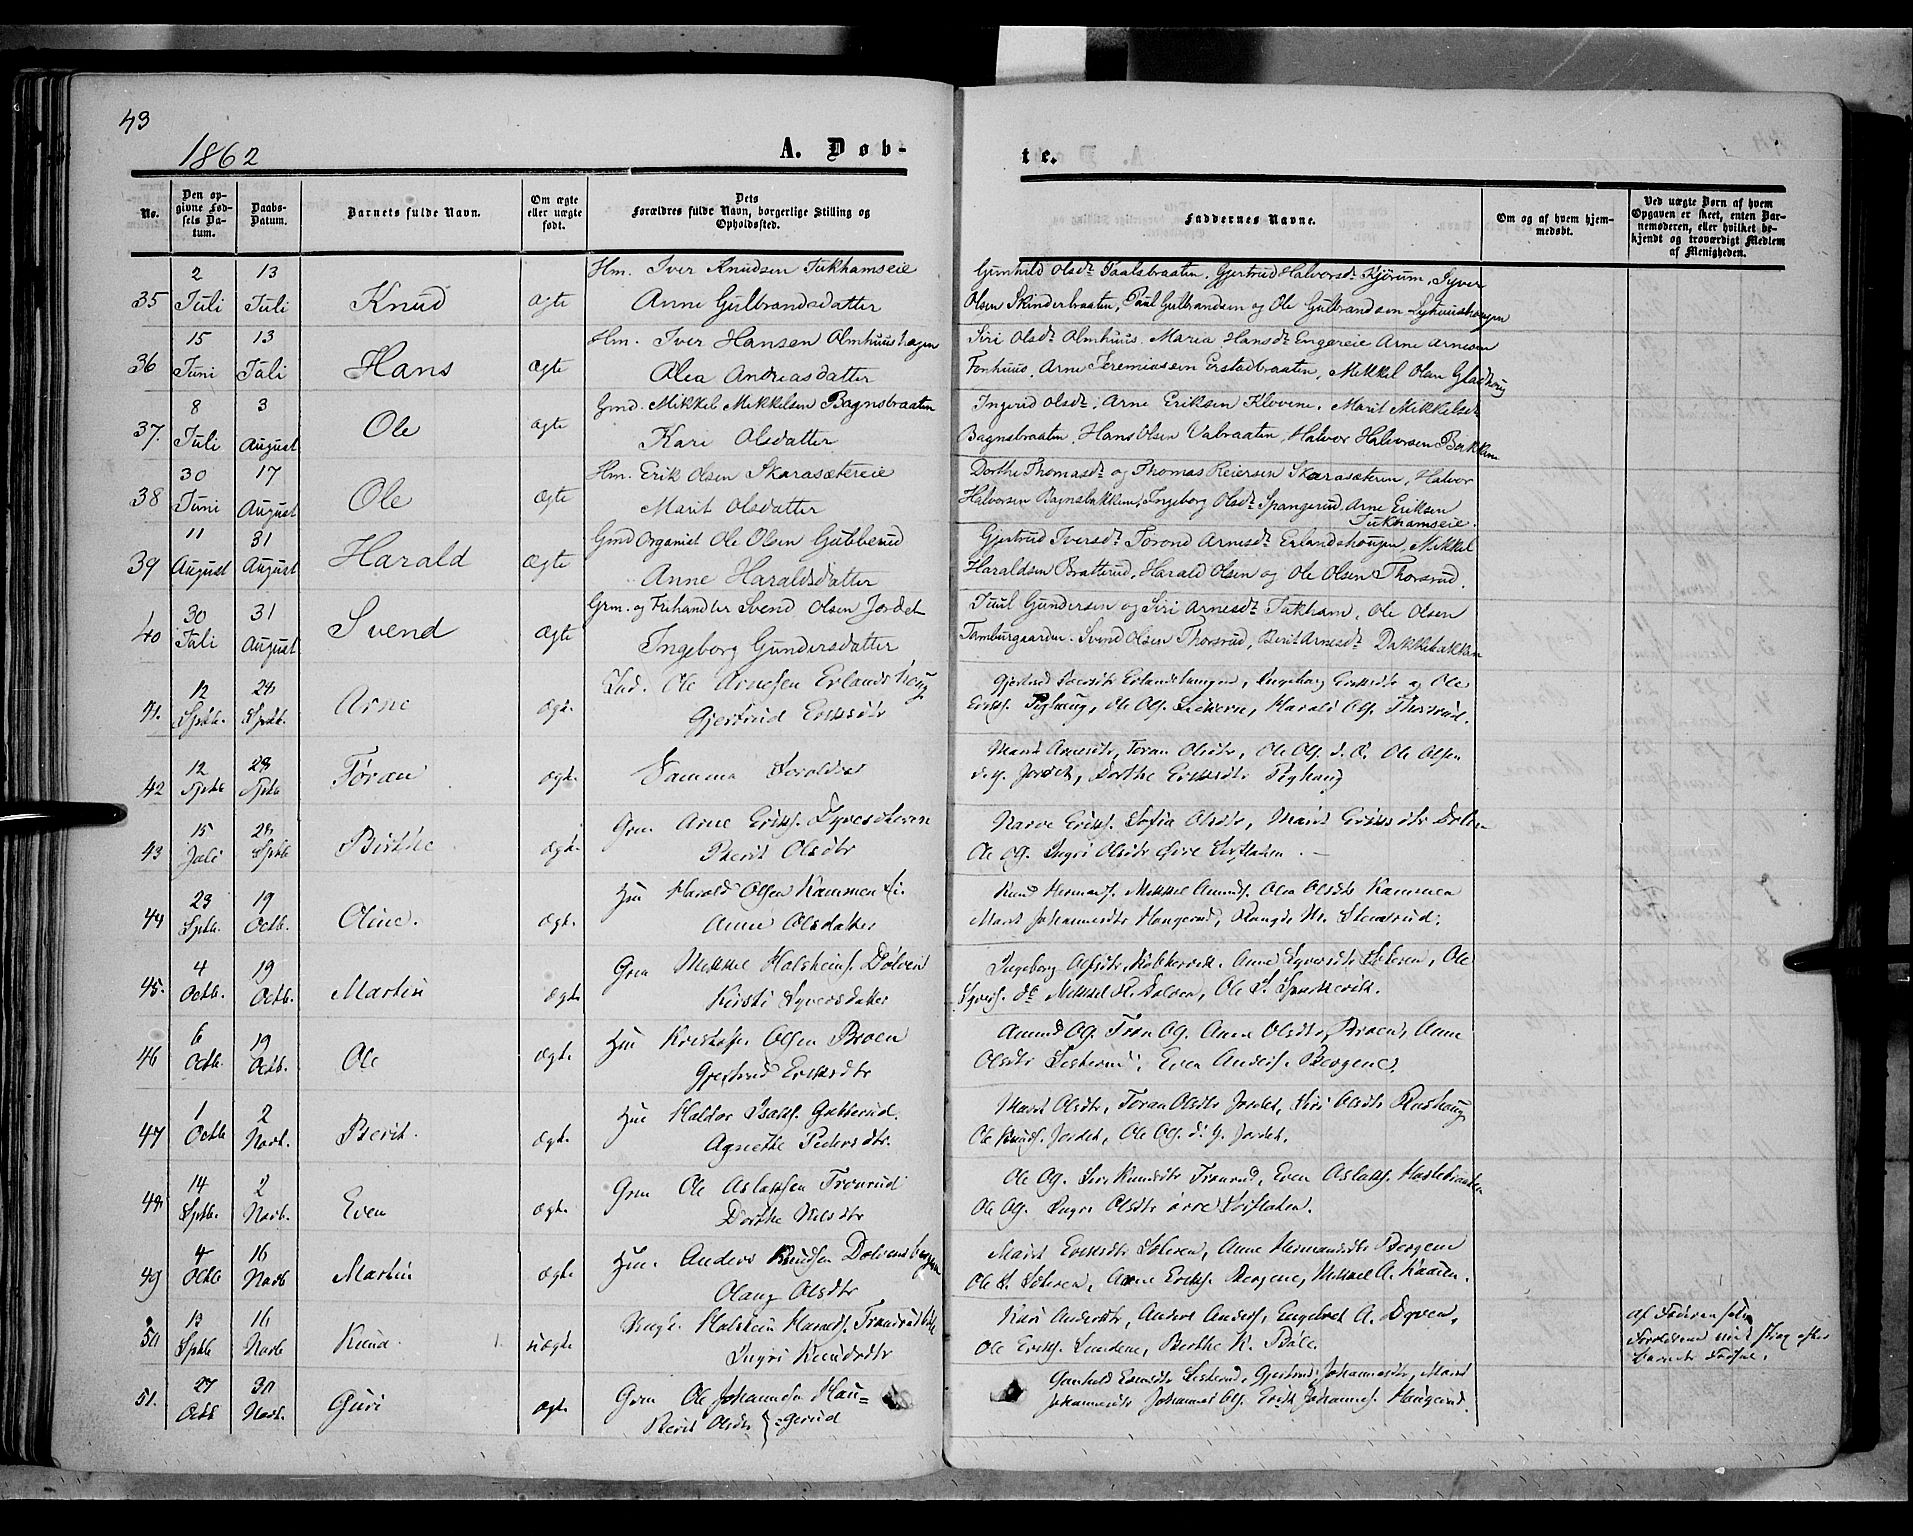 43
1862
A. Døb-
te.
No.
Den op-
givne Fød-
sels Da-
tum.
Daabs-
Datum.
Barnets fulde Navn.
Om ægte
eller uægte
født.
Dets
Forældres fulde Navn, borgerlige Stilling og
Opholdssted.
Faddernes Navne.
Om og af hvem hjem-
medøbt.
Ved uægte Børn af hvem
Opgaven er skeet, enten Bar-
nemoderen, eller hvilket be-
kjendt og troværdigt Medlem
af Menigheden.
35
2 Juli
13 Juli
Knud
ægte
Hm. Iver Knudsen Tukhamseie
Anne Gulbrandsdatter
Gunhild Olsdt Paalsbraaten, Gjertrud Halvorsdt Kjørum, Syver
Olsen Skinderbraaten, Paul Gulbrandsen og Ole Gulbrandsen
36
15 Juni
13 Juli
Hans
ægte
Hm. Iver Hansen Olmhuushagen
Olea Andreasdatter
Siri Olsdt Olmhuus, Maria Hansdt Engereie Arne Arnesen
Fonhuus, Arne Jeremiassen Erstadbraaten, Mikkel Olsen Gladhoug
37.
8 Juli
3 August
Ole
ægte
Gmd. Mikkel Mikkelsen Bagnsbraaten
Kari Olsdatter
Ingerid Olsdt, Arne Eriksen Klovene, Marit Mikkelsdt
Bagnsbraaten, Hans Olsen Vabraaten, Halvor Halvorsen Bakken
38
30 Juni
17 August
Ole
ægte
Hm. Erik Olsen Skarasætereie
Marit Olsdatter
Dorthe Thomasdt og Thomas Reiersen Skarasæteren, Halvor
Halvorsen Bagnsbakken, Ingeborg Olsdt Spangerud, Arne Eriksen
Tukhamseie.
39
11 August
31 August
Harald
ægte
Gmd Organist Ole Olsen Gubberud
Anne Haraldsdatter
Gjertrud Iversdt Torond Arnesdt Erlandshougen, Mikkel
Haraldsen Bratterud, Harald Olsen og Ole Olsen Thorsrud.
40
30 Juli
31 August
Svend
ægte
Grm. og Frihandler Svend Olsen Jordet
Ingeborg Gundersdatter
Juul Gundersen og Siri Arnesdt Tukham, Ole Olsen
Tamburgaarden. Svend Olsen Thorsrud, Berit Arnesdt Bakkebakken
41.
12 Sptb.
28 Sptb.
Arne
ægte
Ind. Ole Arnesen Erlandshoug
Gjertrud Eriksdtr
Gjertrud Iversdtr Erlandshaugen, Ingeborg Eriksdtr og Ole
Eriks. Tyghaug, Ole Ols. , Harald Ols. Thorsrud.
42
12 Sptb
28 Sptb
Toran
ægte
Samma Forældre
Marit Arnesdtr, Toran Olsdtr, Ole Ols. d. Æ. Ole Olsen
d. y. Jordet, Dorthe Eriksdtr Tyghaug
43
15 Juli
28 Sptb
Birthe
ægte
Grm. Arne Eriks.
Berit Olsdtr
Narve Eriks. Sofia Olsdtr, Marit Eriksdtr
Ole Ols. Ingri Olsdtr Øvre
44
23 Sptb.
19 Octb.
Oline.
ægte
Hm Harald Olsen Kammen Ei.
Anne Olsdatter
Knud Hermans. Mikkel Amunds. Olea Olsdtr Kammen
Marit Johannesdtr Haugerud,
45.
4 Octb.
19 Octb.
Martin
ægte
Grm Mikkel Holsteins. Dølven
Kirsti Syversdatter
Ingeborg Olsdtr , Anne Syversdtr Sæteren, Ole
Syvers. Mikkel H. Dølven, Ole S.
46
6 Octb.
19 Octb.
Ole
ægte
Hm Kristofer Olsen Broen
Gjertrud Eriksdtr
Amund Ols. Tron Ols. Anne Olsdtr, Broen, Anne
Olsdtr , Even Anders. Bergene.
47
1 Octb
2 Novb.
Berit.
ægte
Hm Haldor Isaks. Gubberud
Agnethe Pedersdtr.
Marit Olsdtr, Toran Olsdtr Jordet, Siri Olsdtr
Ole Knuds. Jordet, Ole Ols. d. y. Jordet.
48
14 Sptb.
2 Novb.
Even
ægte
Grm Ole Aslaksen Tronrud
Dorthe Nilsdtr
Ole Ols. Siri Knudsdtr Tronrud, Even Aslaks.
Ole Ols. Ingri Olsdtr øvre
49
4 Octb
16 Novb
Martin
ægte
Hm. Anders Knudsen
Olaug Olsdtr
Marit Eriksdtr Sæteren, Anne Hermansdtr Bergene
Ole Sæteren, Arne Eriks. Bergene, Mikkel A.
50
13 Sptb
16 Novb
Knud.
uægte
Ungk. Holstein Haralds.
Ingri Knudsdtr
Kari Andersdtr, Anders Anders. Engebret A. Dyven,
Ole Eriks. , Berthe K. Bøle.
af Faderen selv
Forældrene strax efter
barnets Fødsel.
51.
27 Octb
30 Novb.
Guri
ægte
Grm Ole Johannesen Hau-
Berit Olsdtr } gerud
Gunhild , Gjertrud Johannesdtr, Marit
Johannesdtr Johannes Ols. Erik Johannes. Haugerud.